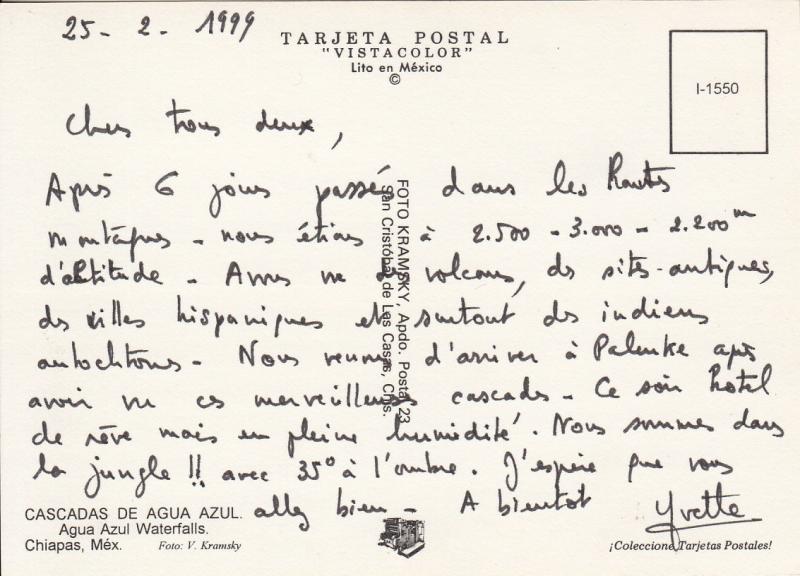 25 - 2 - 1999
TARJETA POSTAL
"VISTACOLOR"
Lito en México
©
I-1550
Chers tous deux,
Après 6 jours passés dans les Hautes
montagnes - nous étions à 2.500 - 3.000 - 2.200 m
d'altitude - Avons vu des volcans, des sites-antiques,
des villes hispaniques et surtout des indiens
autochtones - Nous venons d'arriver à Palenke après
avoir vu ces merveilleuses cascades - Ce soir hotel
de rêve mais en pleine humidité. Nous sommes dans
la jungle !! avec 35° à l'ombre. J'espère que vous
allez bien - A bientot Yvette
FOTO KRAMSKY, Apdo. Postal 23
San Cristóbal de Las Casas, Chis.
CASCADAS DE AGUA AZUL.
Agua Azul Waterfalls.
Chiapas, Méx. Foto: V. Kramsky
¡Coleccione Tarjetas Postales!